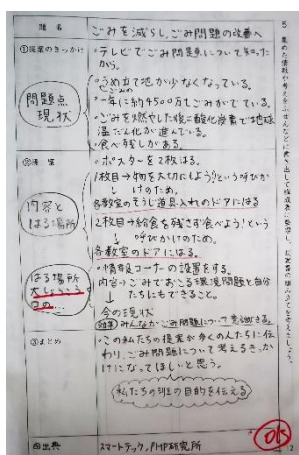 題名
ごみを減らし、ごみ問題の改善へ
①提案のきっかけ
・テレビでごみ問題点について知ったから。
問題点
現状
・うめ立て地が少なくなっている。
・一年に約4500万tごみがでている。
・ごみを燃やした後に二酸化炭素で地球温だん化が進んでいる。
・食べ残しがある。
②提案
内容と
はる場所
・ポスターを2枚はる。
1枚目→物を大切にしよう!という呼びかけのため。
各教室のそうじ道具入れのドアにはる
2枚目→給食を残さず食べよう!という呼びかけのため。
各教室のドアにはる。
はる場所
・情報コーナーの設置をする。
内容→ごみでおこる環境問題と自分たちにもできること。
今の現状
効果 みんながごみ問題について意識できる。
③まとめ
・この私たちの提案が多くの人たちに伝わり、ごみ問題について考えるきっかけになってほしいと思う。
私たちの班の目的を伝える
④出典
スマートテック、PHP研究所
OK
12